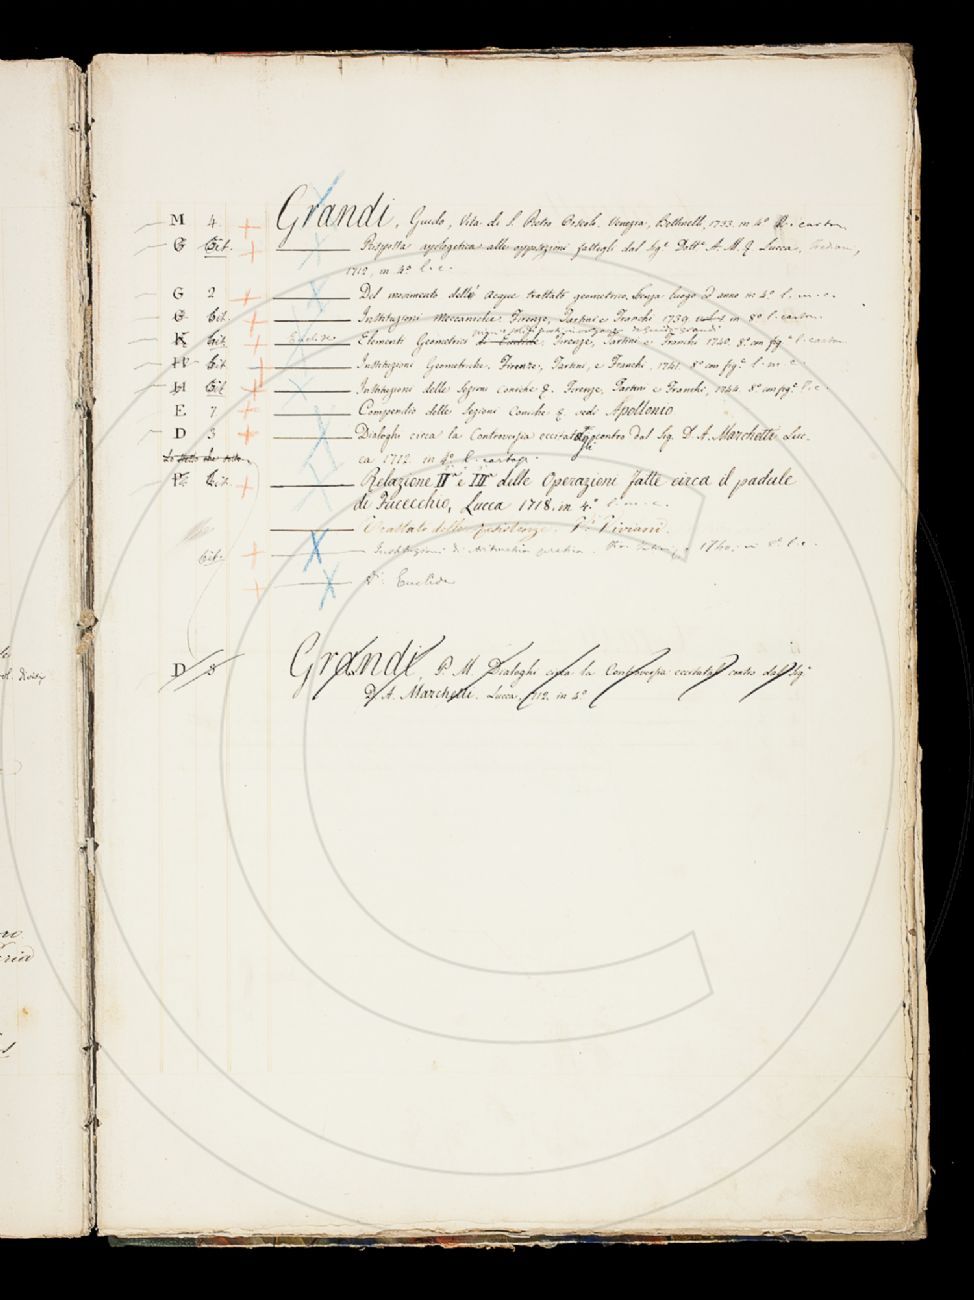 M 4. Grandi, Guido, Vita di S. Pietro Orseolo. Venezia, Bettinelli, 1733. in 4.º
G Bit. Risposta apologetica alle opposizioni fattegli dal Sig.r Dott.r A. M. Q. Lucca,
1712, in 4.º l. c.
G 2 Del movimento delle acque trattato geometrico. Senza luogo ed anno in 4.º l. m. c.
G Bit. Instituzioni Meccaniche. Firenze, Tartini e Franchi 1739 in 8.º l. carton.
K Bit. Euclide Elementi Geometrici di Euclide, Firenze, Tartini e Franchi 1740. 8.º con fig.e l. carton.
Bit Instituzioni Geometriche. Firenze, Tartini, e Franchi, 1741. 8.º con fig.e l. m. c
H Bit Instituzioni delle Sezioni Coniche &. Firenze, Tartini e Franchi, 1744. 8.º con fig.e l. c.
E 7 Compendio delle Sezioni Coniche &. vedi Apollonio
D 3 Dialoghi circa la Controversia eccitatagli contro dal Sig. D. A. Marchetti Luc-
ca 1712. in 4.º l. cartap.
Bit. Relazione II.a e III.a delle Operazioni fatte circa il padule
di Fucecchio, Lucca 1718. in 4.º l. m. c.
Trattato delle resistenze. V. Viviani.
Bit. Instituzioni di Aritmetica pratica. 1740. in 8.º l. c.
V. Euclide
D 3 Grandi, P. M. Dialoghi circa la Controversia eccitata contro dal Sig.r
D. A. Marchetti. Lucca. 1712. in 4.º